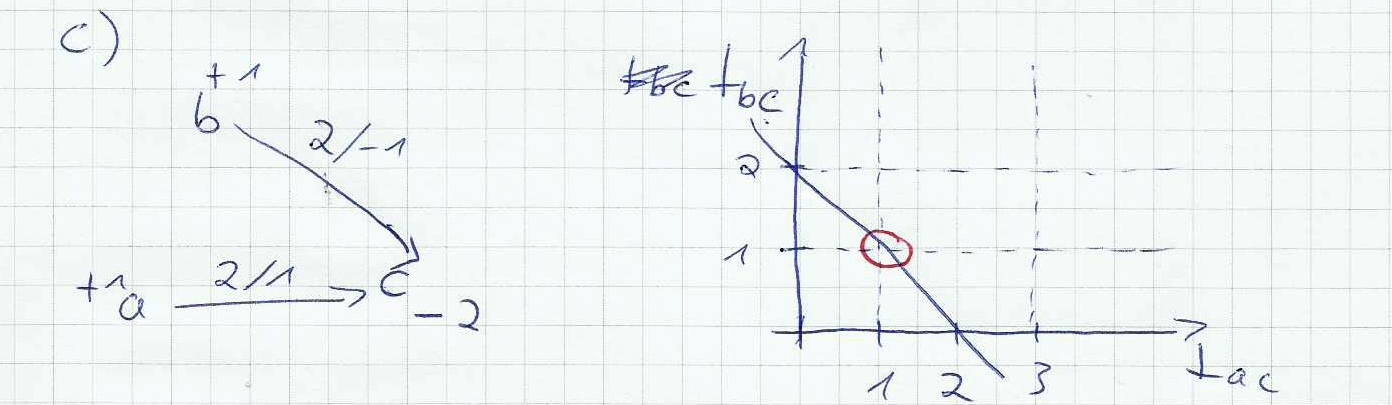 c)
+1
b
2/-1
+1 a 2/1 c -2
t bc
1
2
1
1 2 3
t ac